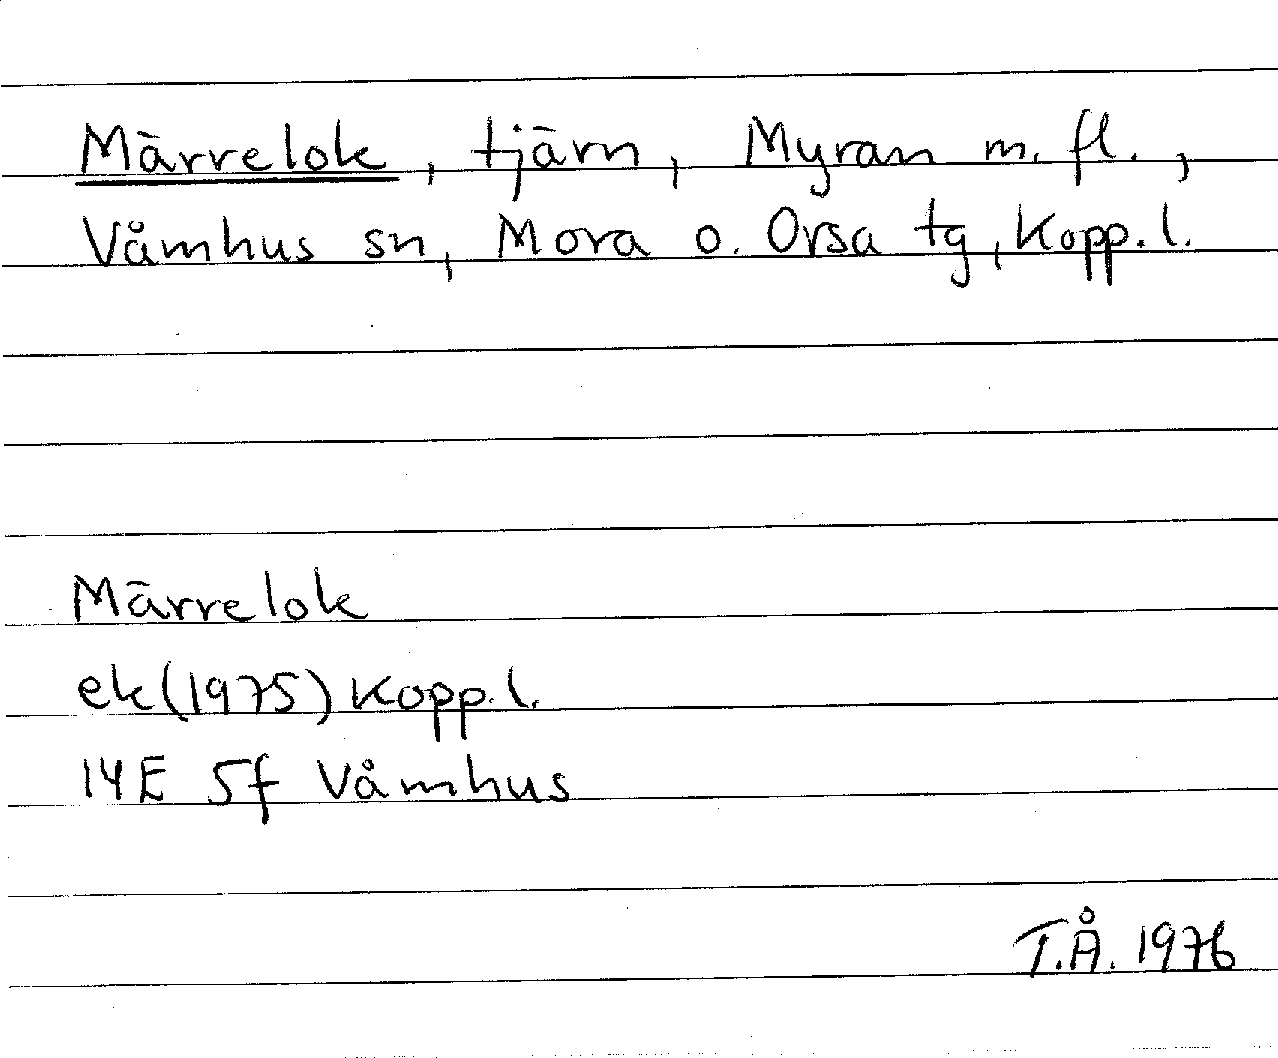 Märrelok, tjärn, Myran m. fl.,
Våmhus sn, Mora o. Orsa tg, Kopp. l.
Märrelok
ek (1975) Kopp. l.
14E 5f Våmhus
T.Å. 1976